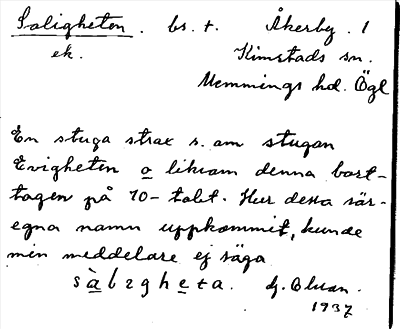 Saligheten. bs. t. Åkerby. 1
ek. Kimstads sn.
Memmings hd. Ögl
En stuga strax s. om stugan
Evigheten o liksom denna bort-
tagen på 70-talet. Hur dessa sär-
egna namn uppkommit, kunde
min meddelare ej säga.
1937